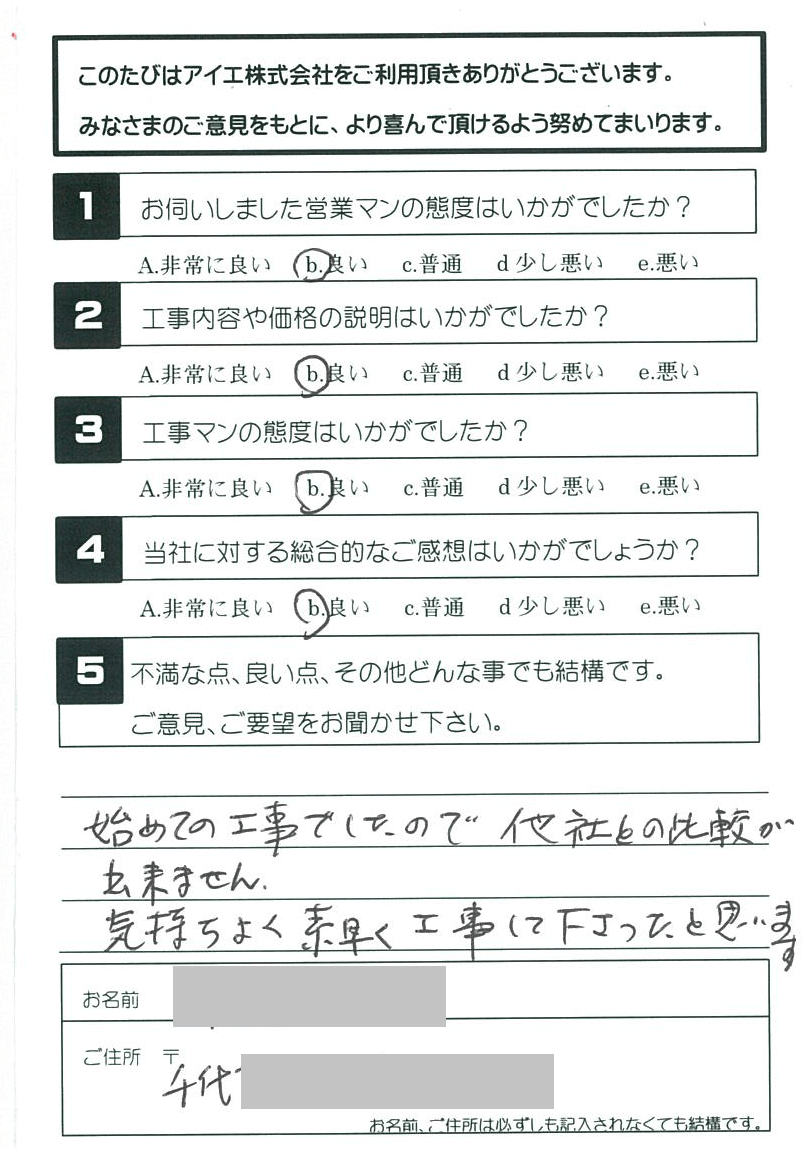 このたびはアイエ株式会社をご利用頂きありがとうございます。
みなさまのご意見をもとに、より喜んで頂けるよう努めてまいります。
1 お伺いしました営業マンの態度はいかがでしたか?
A.非常に良い b.良い c.普通 d少し悪い e.悪い
2 工事内容や価格の説明はいかがでしたか?
A.非常に良い b.良い c.普通 d少し悪い e.悪い
3 工事マンの態度はいかがでしたか?
A.非常に良い b.良い c.普通 d少し悪い e.悪い
4 当社に対する総合的なご感想はいかがでしょうか?
A.非常に良い b.良い c.普通 d少し悪い e.悪い
5 不満な点、良い点、その他どんな事でも結構です。
ご意見、ご要望をお聞かせ下さい。
始めての工事でしたので 他社との比較が
出来ません.
気持ちよく 素早く 工事して下さったと思います
お名前
ご住所 〒
千代
お名前、ご住所は必ずしも記入されなくても結構です。